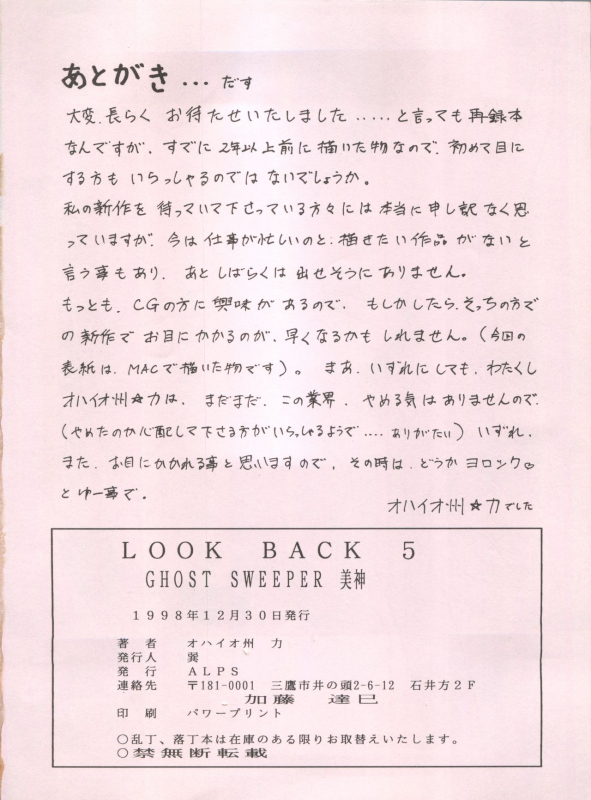 あとがき ... だす
大変、長らく お待たせいたしました ..... と言っても 再録本
なんですが、すでに 2年以上前に 描いた物なので、初めて目に
する方も いらっしゃるのでは ないでしょうか。
私の新作を 待っていて下さっている方々には 本当に 申し訳なく思
っていますが、今は 仕事が忙しいのと、描きたい作品がないと
言う事もあり、あとしばらくは 出せそうに ありません。
もっとも、CGの方に 興味が あるので、もしかしたら、そっちの方で
の新作で お目にかかるのが、早くなるかも しれません。(今回の
表紙は、MACで描いた物です)。まあ、いずれにしても、わたくし
オハイオ州☆力は、まだまだ、この業界、やめる気はありませんので、
(やめたのか心配して下さる方がいらっしゃるようで .... ありがたい) いずれ、
また、お目にかかれる事と思いますので、その時は、どうか ヨロシク♡
とゆー事で。
オハイオ州☆力でした
LOOK BACK 5
GHOST SWEEPER 美神
1998年12月30日発行
著者 オハイオ州 力
発行人 巽
発行 ALPS
連絡先 〒181-0001 三鷹市井の頭2-6-12 石井方2F
加藤 達巳
印刷 パワープリント
○乱丁、落丁本は在庫のある限りお取替えいたします。
○禁無断転載